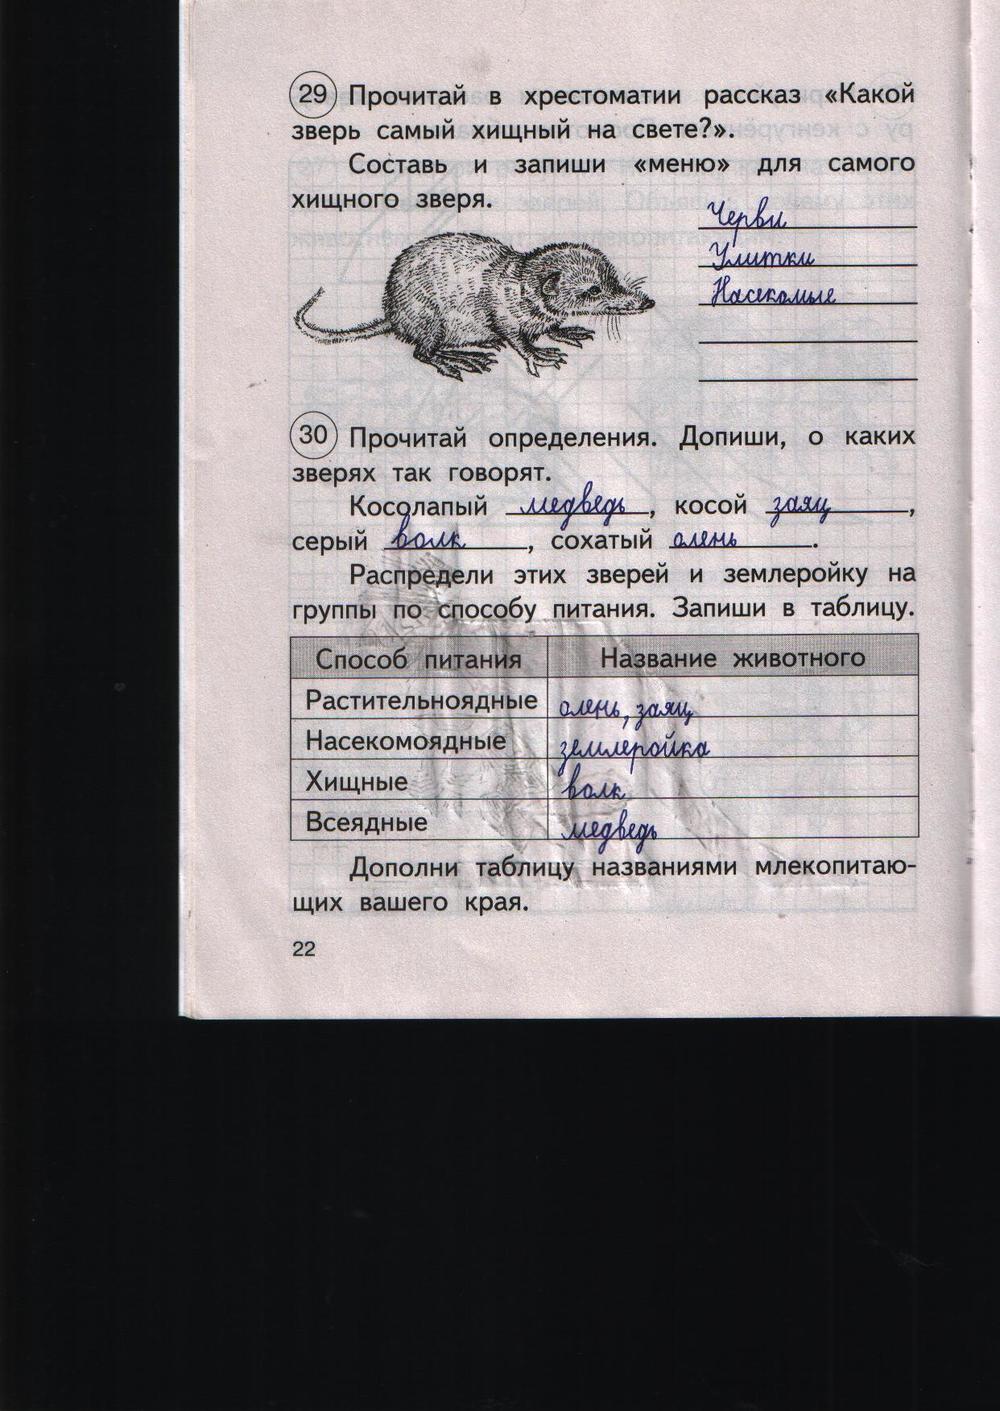 29 Прочитай в хрестоматии рассказ «Какой
зверь самый хищный на свете?».
Составь и запиши «меню» для самого
хищного зверя.
Черви
Улитки
Насекомые
30 Прочитай определения. Допиши, о каких
зверях так говорят.
Косолапый медведь, косой заяц,
серый волк, сохатый олень.
Распредели этих зверей и землеройку на
группы по способу питания. Запиши в таблицу.
Способ питания Название животного
Растительноядные олень, заяц
Насекомоядные землеройка
Хищные волк
Всеядные медведь
Дополни таблицу названиями млекопитаю-
щих вашего края.
22